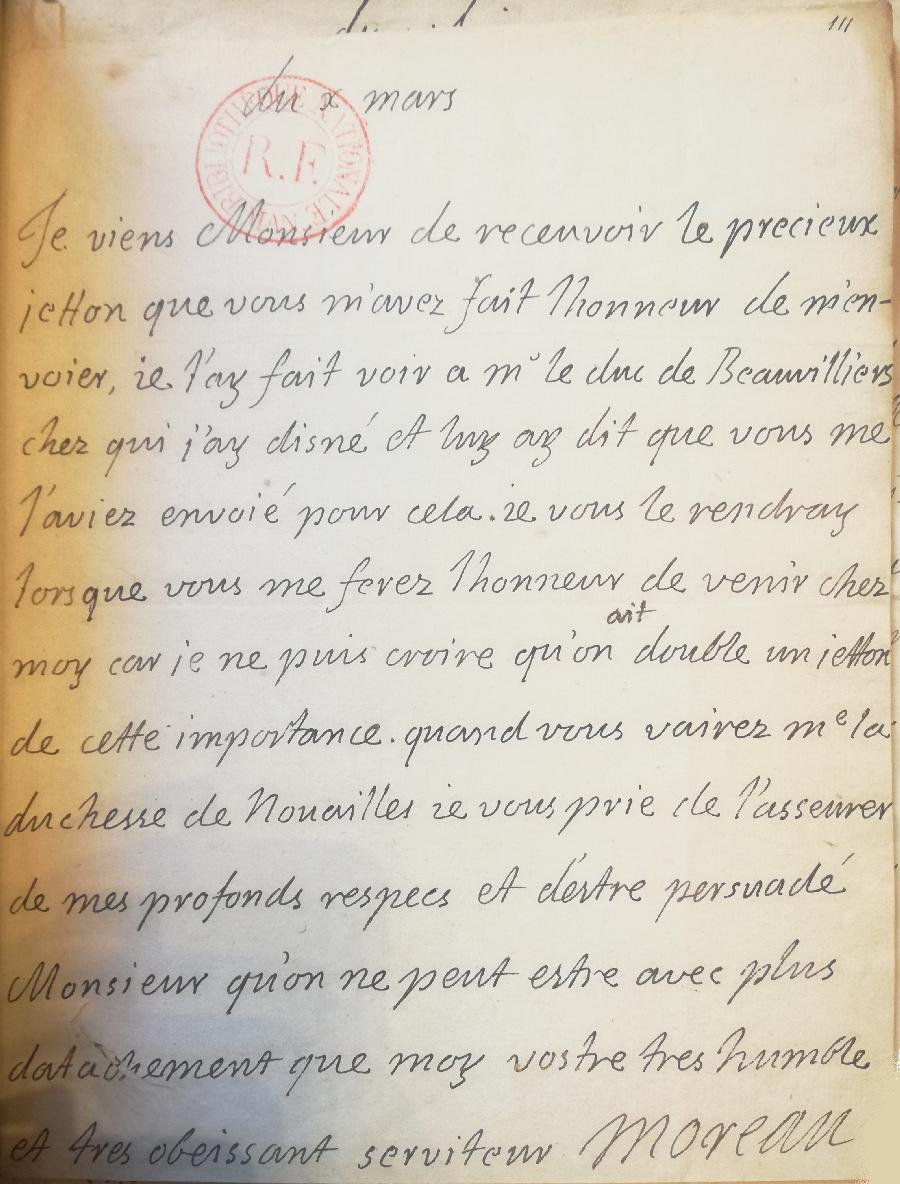 111
du x mars
BIBLIOTHEQUE NATIONALE MSS
R.F.
Je viens Monsieur de recevvoir le precieux
jetton que vous m'avez fait lhonneur de m'en-
voier, ie l'ay fait voir a mr le duc de Beauvilliers
chez qui j'ay disné et luy ay dit que vous me
l'aviez envoié pour cela. ie vous le rendray
lorsque vous me ferez lhonneur de venir chez
ait
moy car ie ne puis croire qu'on double un jetton
de cette importance. quand vous vairez me la
duchesse de Nouailles ie vous prie de l'asseurer
de mes profonds respecs et d'estre persuadé
Monsieur qu'on ne peut estre avec plus
datachement que moy vostre tres humble
et tres obeissant serviteur Moreau